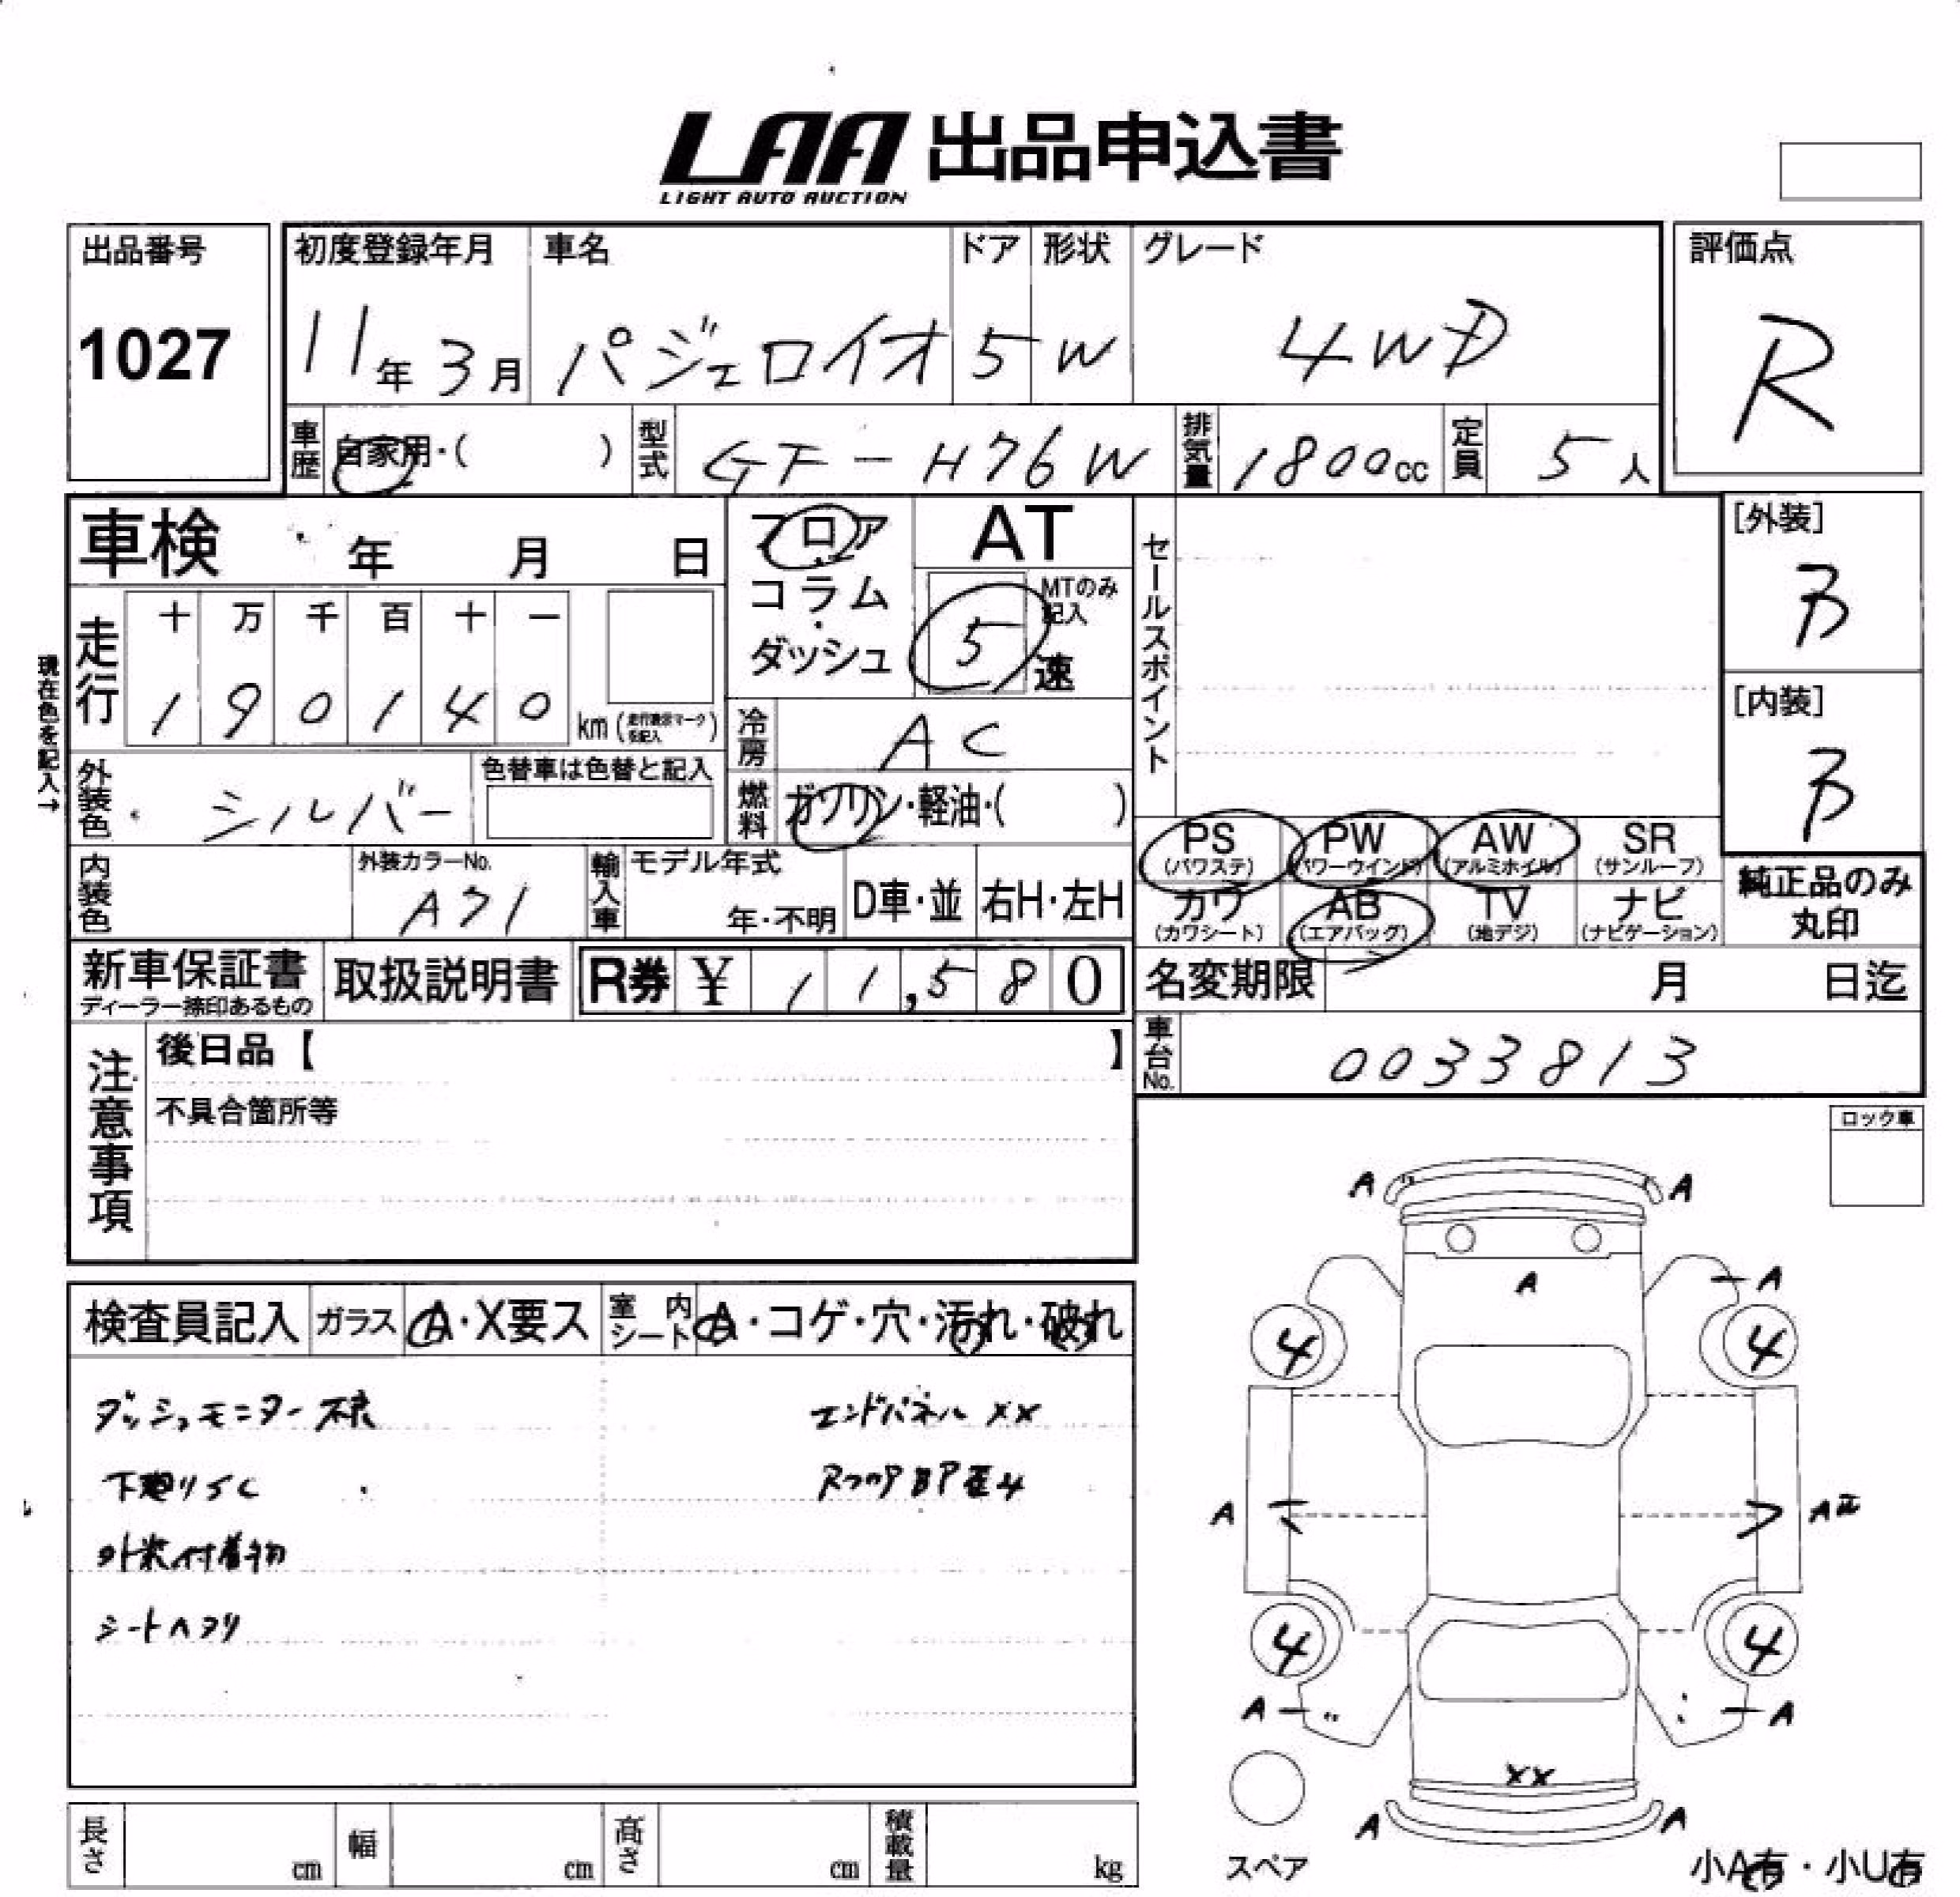 LAA 出品申込書
LIGHT AUTO AUCTION
出品番号
1027
初度登録年月
11年3月
車名
パジェロイオ
ドア
5
形状
W
グレード
4WD
評価点
R
車歴
自家用・(　　)
型式
GF-H76W
排気量
1800cc
定員
5人
車検　年　月　日
フロア・
コラム・
ダッシュ
AT
MTのみ記入
5速
セールスポイント
[外装]
B
[内装]
B
現在色を記入→
走行
十 万 千 百 十 一
1 9 0 1 4 0 km
(走行表示マークを記入)
冷房
AC
外装色
シルバー
色替車は色替と記入
燃料
ガソリン・軽油・(　　)
PS
(パワステ)
PW
(パワーウインド)
AW
(アルミホイル)
SR
(サンルーフ)
内装色
外装カラーNo.
A71
輸入車
モデル年式
年・不明
D車・並
右H・左H
カワ
(カワシート)
AB
(エアバッグ)
TV
(地デジ)
ナビ
(ナビゲーション)
純正品のみ
丸印
新車保証書
ディーラー捺印あるもの
取扱説明書
R券 ¥ 11,580
名変期限　月　日迄
車台No.
0033813
注意事項
後日品【　　】
不具合箇所等
ロック車
検査員記入
ガラス
A・X要ス
室内シート
A・コゲ・穴・汚れ・破れ
ダッシュモニター不良
エンドパネル XX
下廻りSC
RフロアBP歪み
外装付着物
シートヘタリ
A A
A
A
4 4
A A
4 4
A A
XX
A A
スペア
小A有・小U有
長さ cm
幅 cm
高さ cm
積載量 kg